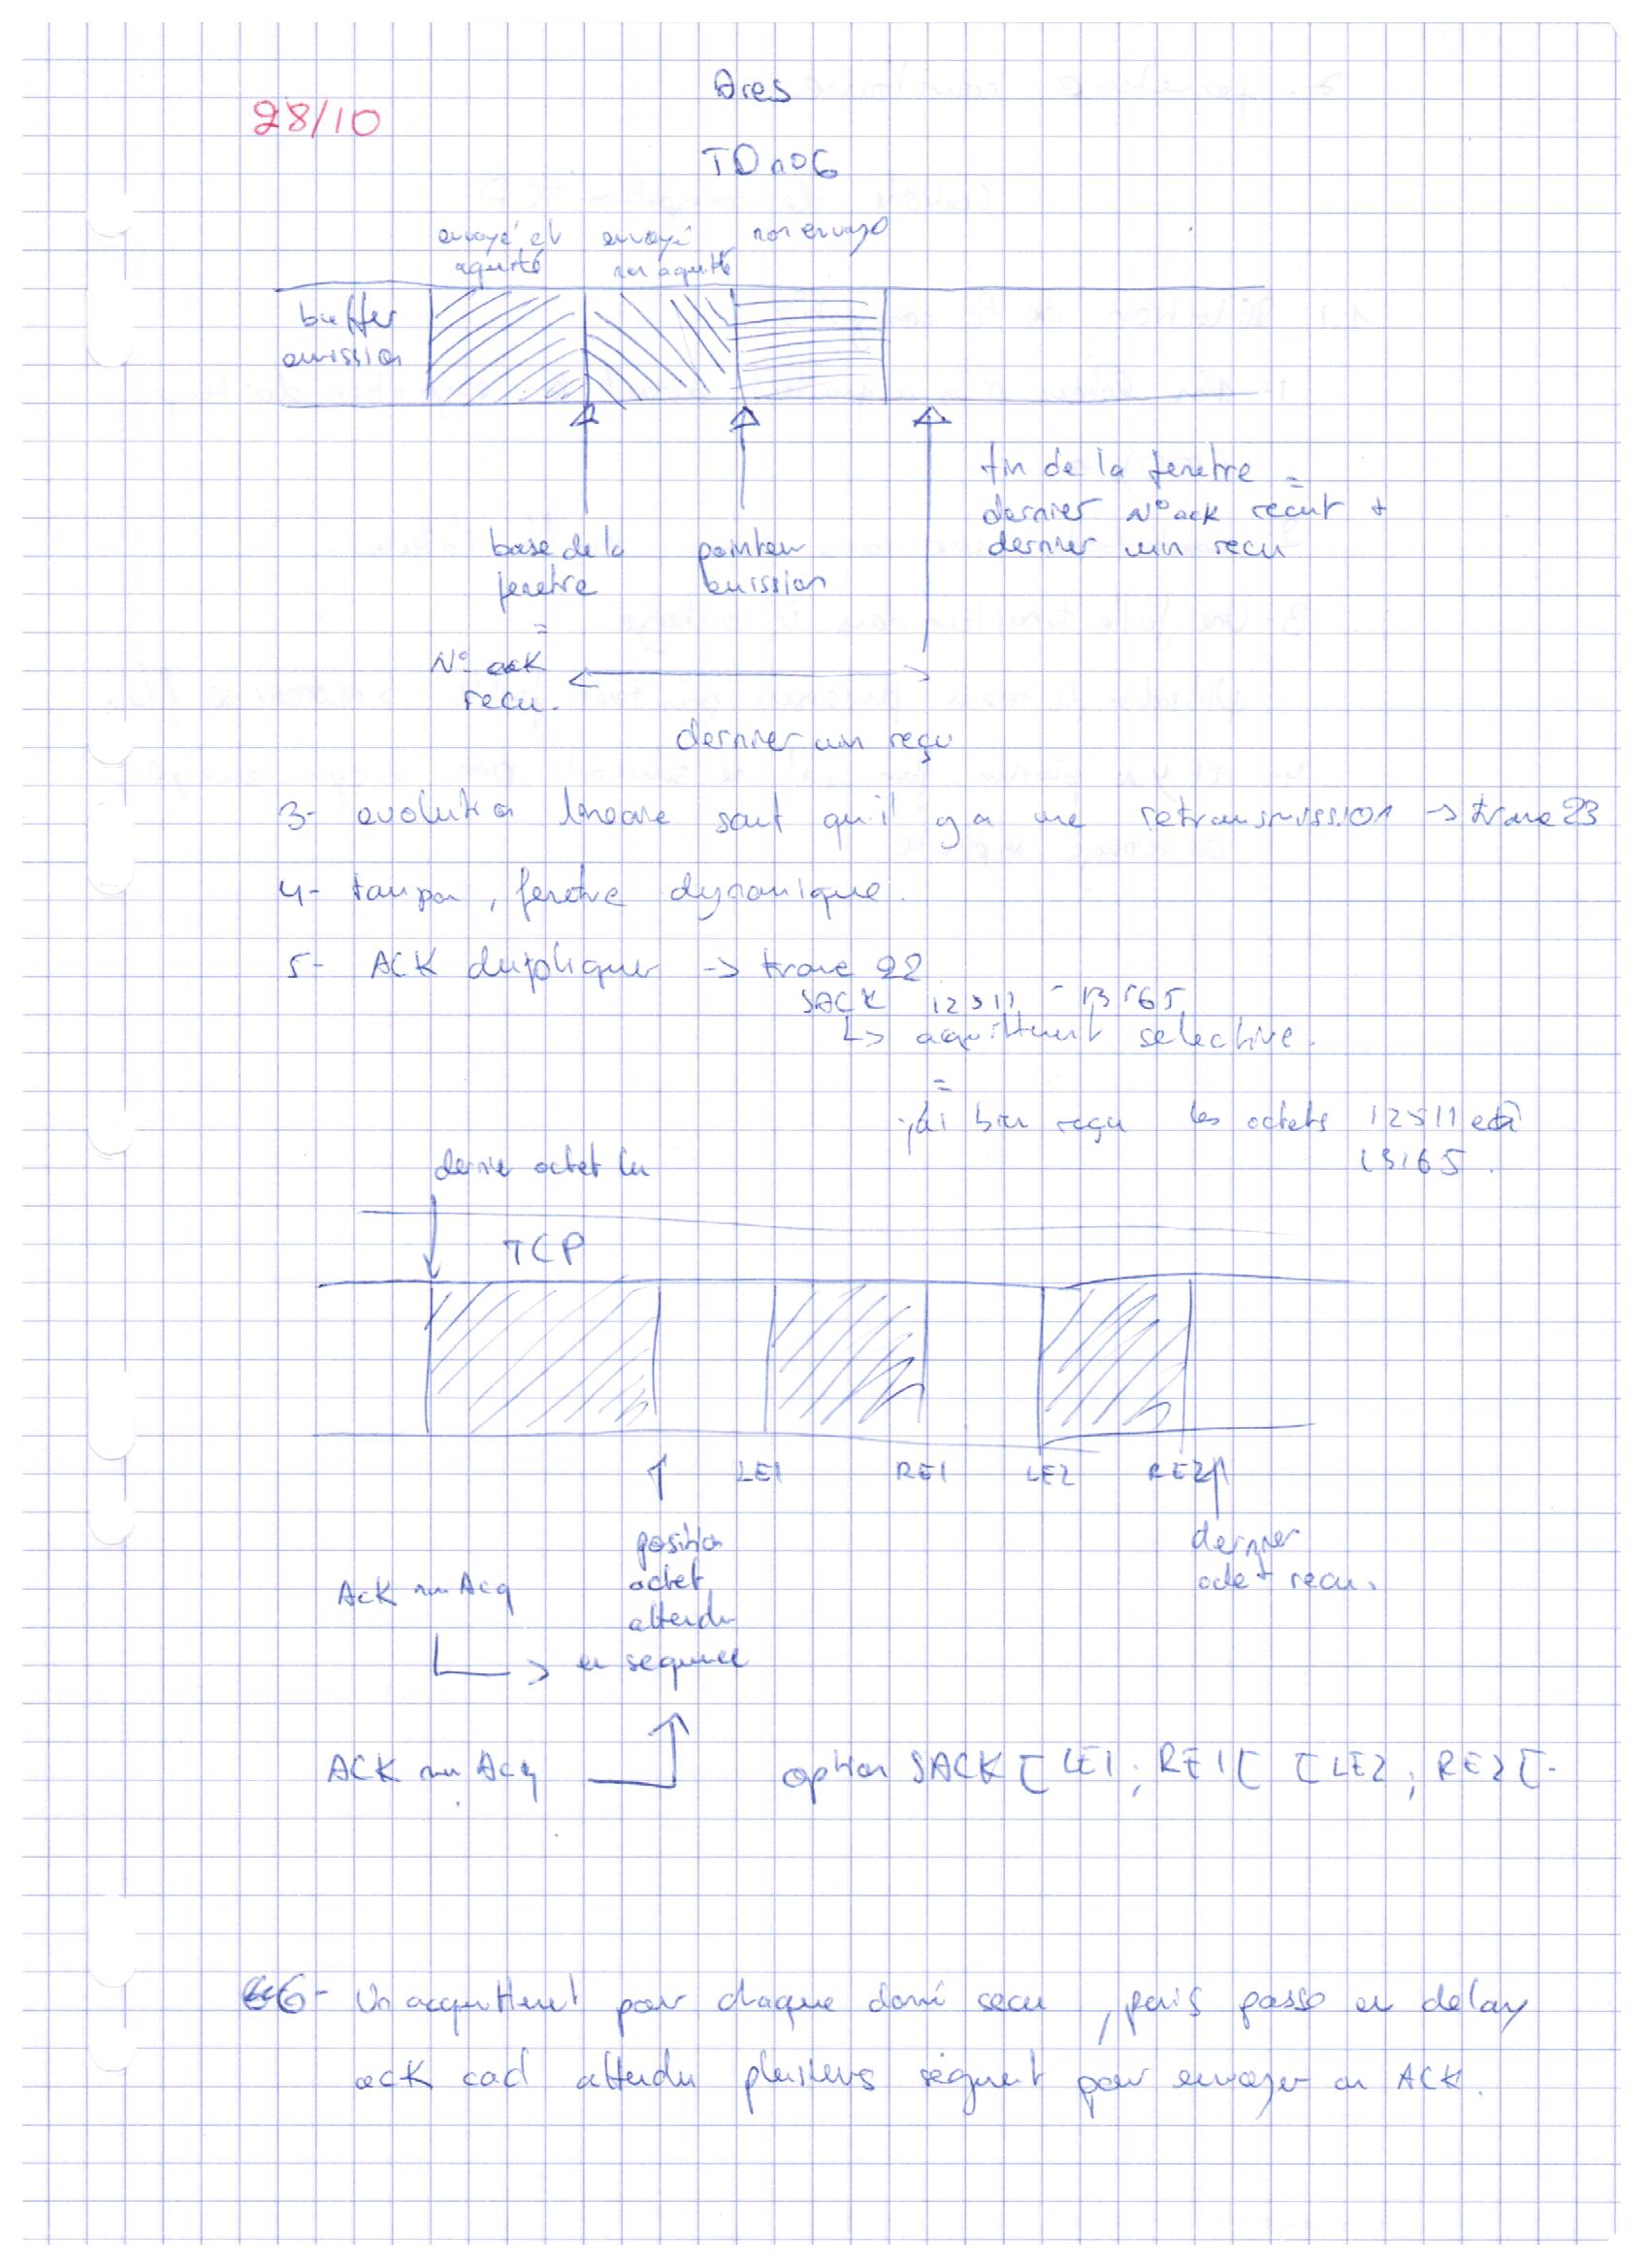 Ares
28/10
TD n°6
envoyé et envoyé non envoyé
aquité non aquitté
buffer
emission
fin de la fenetre =
dernier N° ack recut +
dernier win recu
base de la pointeur
fenetre emission
=
N° ack
recu.
dernier win reçu
3- evolution lineaire sauf qu'il y a une retransmission -> trame 23
4- tampon, fenetre dynamique.
5- ACK dupliquer -> trame 22
SACK 12511 - 13165
↳ aquittement selective.
=
j'ai bien reçu les octets 12511 et à
13165.
dernier octet lu
TCP
LE1 RE1 LE2 RE2
position dernier
octet octet recu.
Ack num Acq
attendu
en sequence
ACK num Acq option SACK [LE1; RE1[ [LE2; RE2[.
6- Un acquittement pour chaque donné recu, puis passe en delay
ack cad attendu plusieurs ségment pour envoyer un ACK.